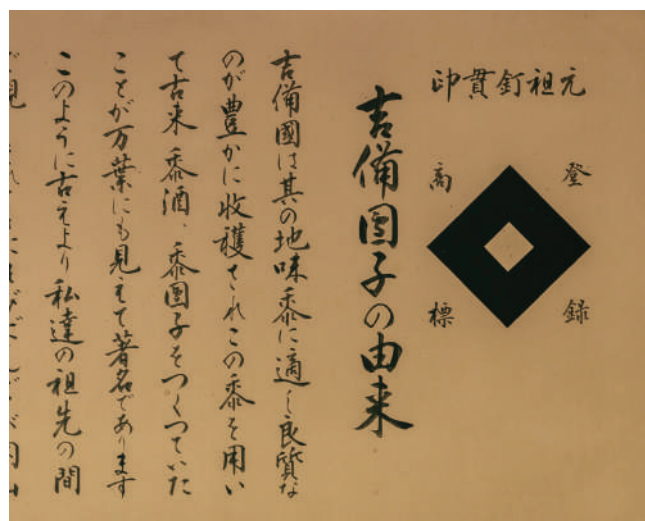 元祖釘貫印
登録
商標
吉備團子の由来
吉備國は其の地味黍に適し良質な
のが豊かに收穫されこの黍を用い
て古来黍酒、黍團子をつくつていた
ことが万葉にも見えて著名であります
このように古えより私達の祖先の間